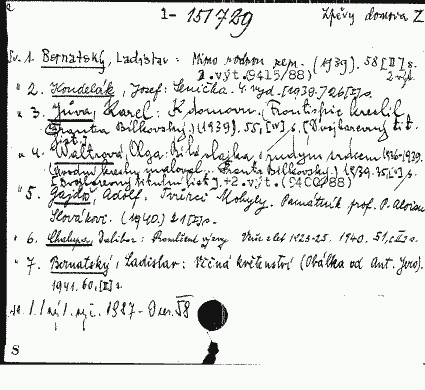 1-151729
Zpěvy domova Z
Sv. 1. Bernatský, Ladislav: Mimo rodnou zem. (1939). 58 [II] s.
2. výt. (9415/88) 2 výt.
" 2. Koudelák, Josef: Senička. 4. vyd. [1939.] 26 [I] s.
" 3. Jůva, Karel: K domovu. (Frontispic kreslil
Franta Bílkovský.) (1939). 55, [IV] s. [Dvojbarevný tit.
list.]
" 4. Waltrová, Olga: Bílá vlajka s rudým srdcem 1936-1939.
(Úvodní kresbu maloval Franta Bílkovský.) 1939. 35, [I] s.
[Dvojbarevný titulní list.] +2. výt. (9402/88)
" 5. Gajdoš, Adolf: Tvůrci Mohyly. Památník prof. P. Aloisu
Slovákovi. (1940.) 21 [I] s.
" 6. Chalupa, Dalibor: Promělčené Verše z let 1923-25. 1940. 51, [II] s.
" 7. Bernatský, Ladislav: Věčná květenství (Obálka od Ant. Jero).
1941. 60, [II] s.
1927
S